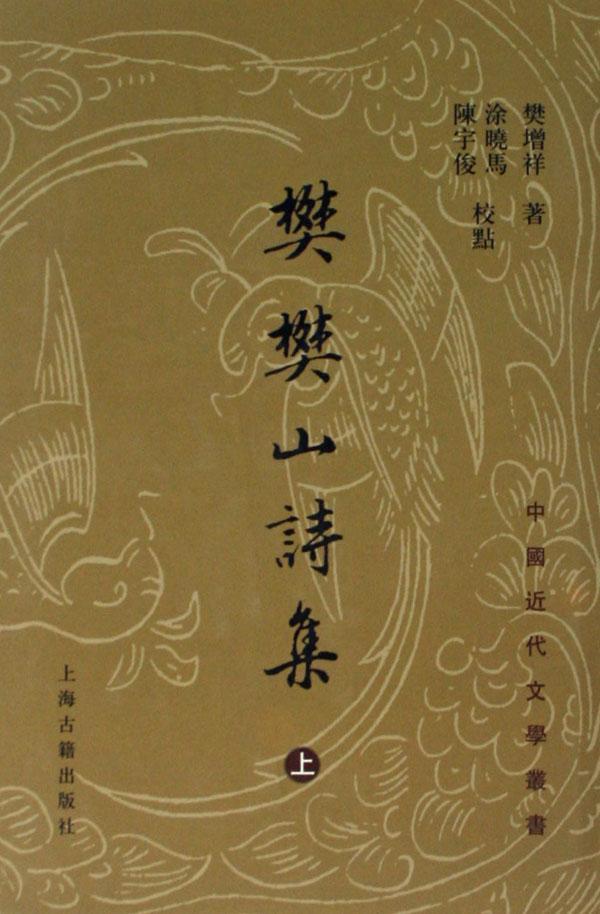 樊增祥 著
涂曉馬
陳宇俊
校點
樊樊山詩集
上
中國近代文學叢書
上海古籍出版社